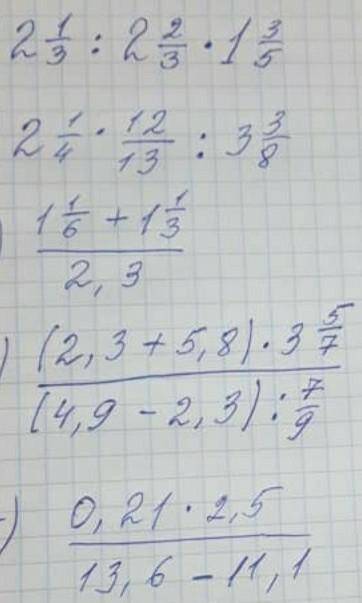 2 1/3 : 2 2/3 · 1 3/5
2 1/4 · 12/13 : 3 3/8
) (1 1/6 + 1 1/3)/(2,3)
) ((2,3 + 5,8) · 3 5/7)/((4,9 - 2,3) : 7/9)
) (0,21 · 2,5)/(13,6 - 11,1)